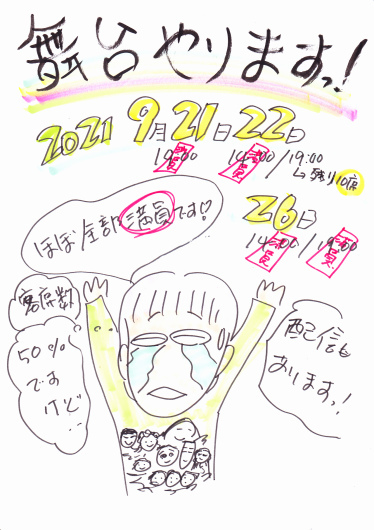 舞台やりますっ!
2021 9月21日22日
満員 19:00 満員 14:00/19:00
↳残り10席
26日
満員 14:00/満員 19:00
ほぼ全部満員です♡
客席数
50%
です
けど
配信も
ありますっ!